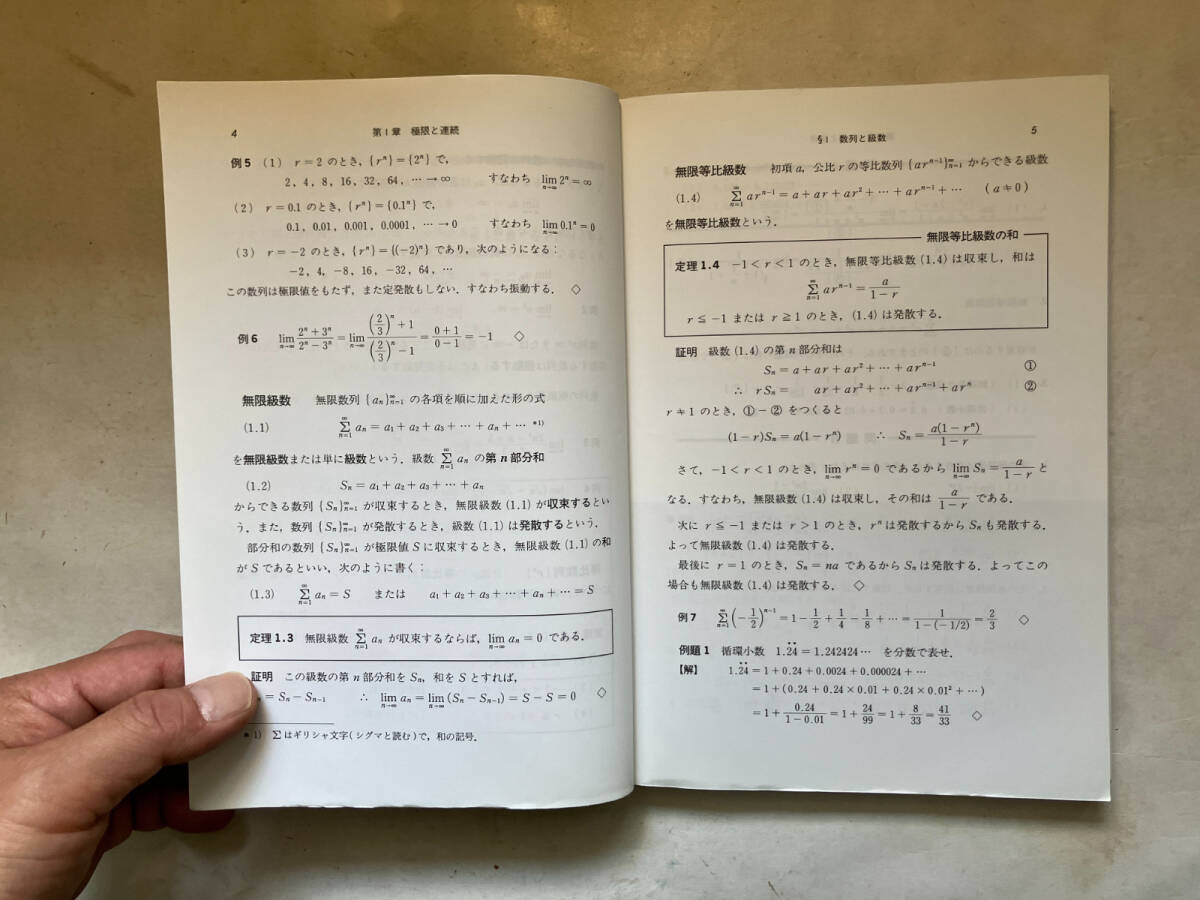 4 第1章 極限と連続
例5 (1) r=2 のとき, {rⁿ}={2ⁿ} で,
2, 4, 8, 16, 32, 64, … → ∞ すなわち lim_{n→∞} 2ⁿ = ∞
(2) r=0.1 のとき, {rⁿ}={0.1ⁿ} で,
0.1, 0.01, 0.001, 0.0001, … → 0 すなわち lim_{n→∞} 0.1ⁿ = 0
(3) r=−2 のとき, {rⁿ}={(−2)ⁿ} であり, 次のようになる:
−2, 4, −8, 16, −32, 64, …
この数列は極限値をもたず, また定発散もしない. すなわち振動する. ◇
例6 lim_{n→∞} (2ⁿ+3ⁿ)/(2ⁿ−3ⁿ) = lim_{n→∞} ((2/3)ⁿ+1)/((2/3)ⁿ−1) = (0+1)/(0−1) = −1 ◇
無限級数 無限数列 {aₙ}_{n=1}^∞ の各項を順に加えた形の式
(1.1) Σ_{n=1}^∞ aₙ = a₁+a₂+a₃+…+aₙ+… *1)
を無限級数または単に級数という. 級数 Σ_{n=1}^∞ aₙ の第 n 部分和
(1.2) Sₙ = a₁+a₂+a₃+…+aₙ
からできる数列 {Sₙ}_{n=1}^∞ が収束するとき, 無限級数 (1.1) が収束するとい
う. また, 数列 {Sₙ}_{n=1}^∞ が発散するとき, 級数 (1.1) は発散するという.
部分和の数列 {Sₙ}_{n=1}^∞ が極限値 S に収束するとき, 無限級数 (1.1) の和
が S であるといい, 次のように書く:
(1.3) Σ_{n=1}^∞ aₙ = S または a₁+a₂+a₃+…+aₙ+… = S
定理1.3 無限級数 Σ_{n=1}^∞ aₙ が収束するならば, lim_{n→∞} aₙ = 0 である.
証明 この級数の第 n 部分和を Sₙ, 和を S とすれば,
= Sₙ − Sₙ₋₁ ∴ lim_{n→∞} aₙ = lim_{n→∞} (Sₙ − Sₙ₋₁) = S − S = 0 ◇
*1) Σ はギリシャ文字(シグマと読む)で, 和の記号.
§1 数列と級数 5
無限等比級数 初項 a, 公比 r の等比数列 {arⁿ⁻¹}_{n=1}^∞ からできる級数
(1.4) Σ_{n=1}^∞ arⁿ⁻¹ = a+ar+ar²+…+arⁿ⁻¹+… (a≠0)
を無限等比級数という.
無限等比級数の和
定理1.4 −1<r<1 のとき, 無限等比級数 (1.4) は収束し, 和は
Σ_{n=1}^∞ arⁿ⁻¹ = a/(1−r)
r≦−1 または r≧1 のとき, (1.4) は発散する.
証明 級数 (1.4) の第 n 部分和は
Sₙ = a+ar+ar²+…+arⁿ⁻¹ ①
∴ rSₙ = ar+ar²+…+arⁿ⁻¹+arⁿ ②
r≠1 のとき, ①−② をつくると
(1−r)Sₙ = a(1−rⁿ) ∴ Sₙ = a(1−rⁿ)/(1−r)
さて, −1<r<1 のとき, lim_{n→∞} rⁿ = 0 であるから lim_{n→∞} Sₙ = a/(1−r) と
なる. すなわち, 無限級数 (1.4) は収束し, その和は a/(1−r) である.
次に r≦−1 または r>1 のとき, rⁿ は発散するから Sₙ も発散する.
よって無限級数 (1.4) は発散する.
最後に r=1 のとき, Sₙ=na であるから Sₙ は発散する. よってこの
場合も無限級数 (1.4) は発散する. ◇
例7 Σ_{n=1}^∞ (−1/2)ⁿ⁻¹ = 1 − 1/2 + 1/4 − 1/8 + … = 1/(1−(−1/2)) = 2/3 ◇
例題1 循環小数 1.2̇4̇ = 1.242424… を分数で表せ.
【解】 1.2̇4̇ = 1+0.24+0.0024+0.000024+…
= 1+(0.24+0.24×0.01+0.24×0.01²+…)
= 1 + 0.24/(1−0.01) = 1 + 24/99 = 1 + 8/33 = 41/33 ◇